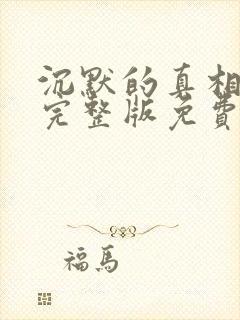 沉默的真相
完整版免費
福馬